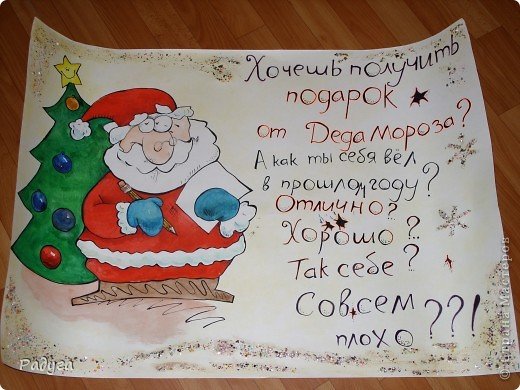 Хочешь получить
подарок
от Деда Мороза?
А как ты себя вёл
в прошлом году?
Отлично?
Хорошо?
Так себе?
Совсем
плохо??!
Радуга
© Страна Мастеров